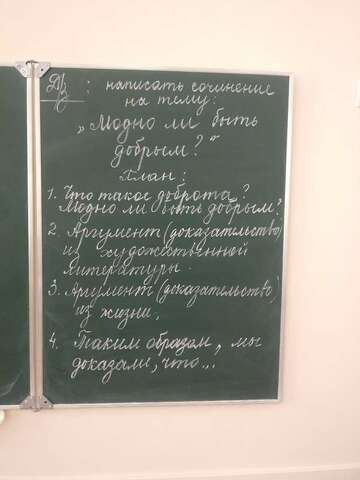 Д/З : написать сочинение
на тему:
„Модно ли быть
добрым?"
План:
1. Что такое доброта?
Модно ли быть добрым?
2. Аргумент (доказательство)
из художественной
литературы.
3. Аргумент (доказательство)
из жизни.
4. Таким образом, мы
доказали, что...